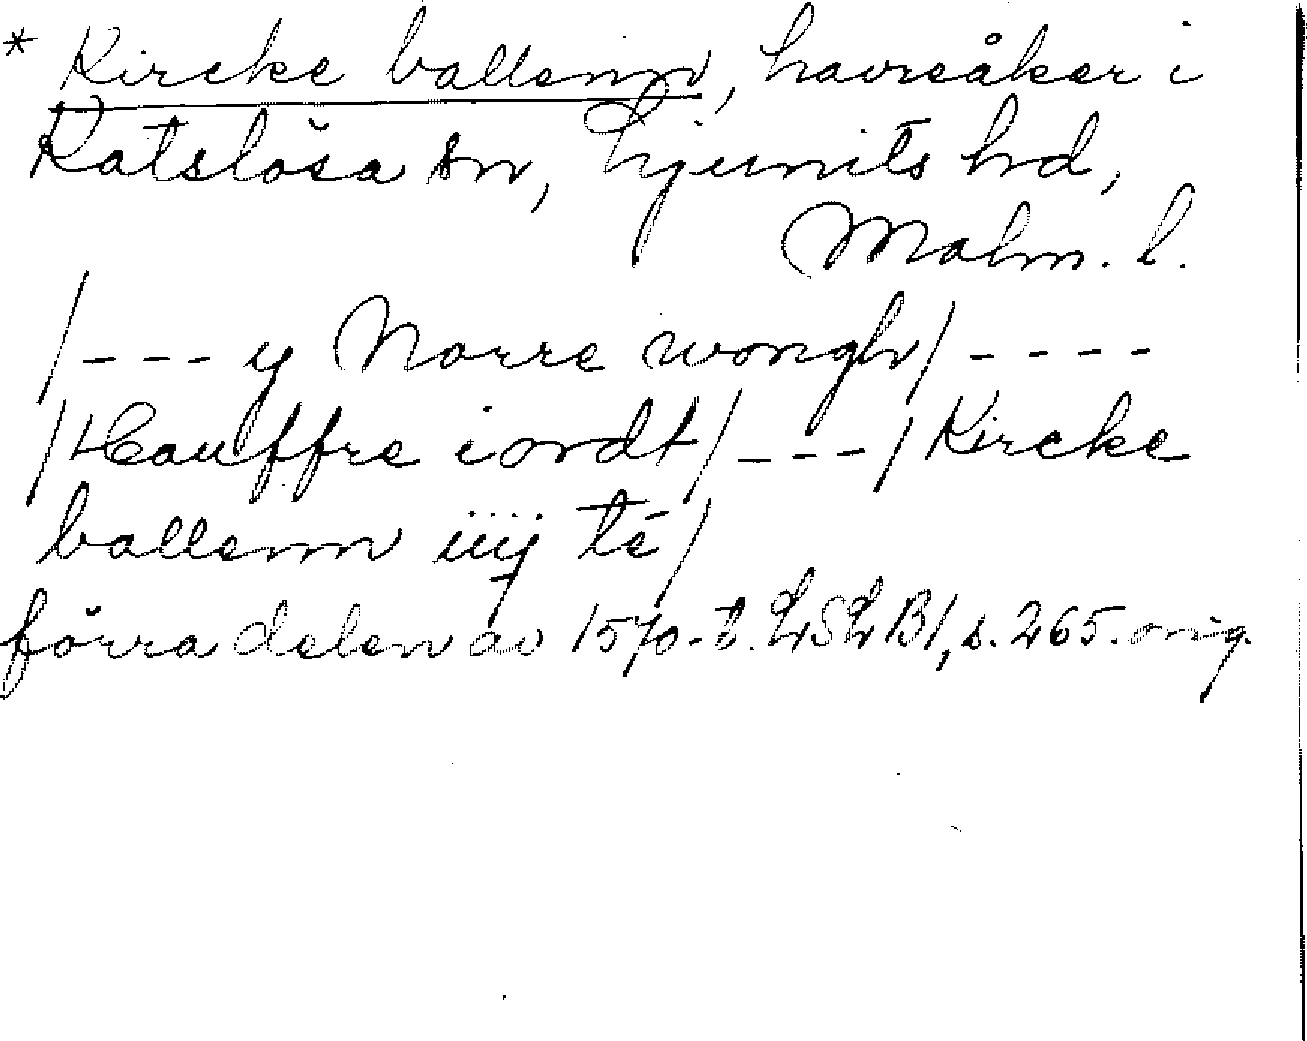 * Kircke ballenn, havreåker i
Katslösa sn, Ljunits hd,
Malm. l.
/--- y Norre wongh/ ----
/Hauffre iordt/ --- / Kircke
ballenn iiij té/
förra delen av 1570-t. LSLB1, s. 265. orig.